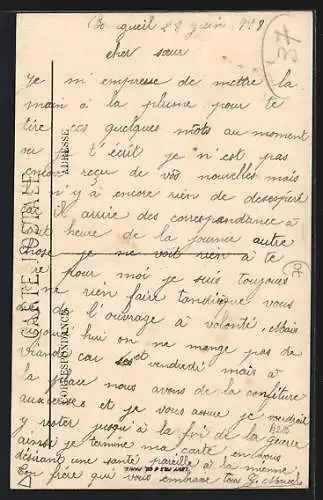 Bourgueil 28 juin 1918
37
cher sœur
Je m'empresse de mettre la
main à la plume pour te
lire ces quelques mots au moment
ou je t'écrit je n'est pas
encore reçu de vos nouvelles mais
n'y à encore rien de desespéré
car il arrive des correspondance à
heure de la journée autre
chose je ne voit rien à te
pour moi je suis toujours
à ne rien faire tandisque vous
de l'ouvrage à volonté. Mais
aujourd'hui on ne mange pas de
viande car est vendredi mais à
la place nous avons de la confiture
aux cerises et je vous assure je voudrait
y rester jusqu'à la fin de la guerre
ainsi je termine ma carte en vous
désirant une santé pareille à la mienne
Ton frère qui vous embrasse tous G. Marcel
CARTE POSTALE
CORRESPONDANCE
ADRESSE